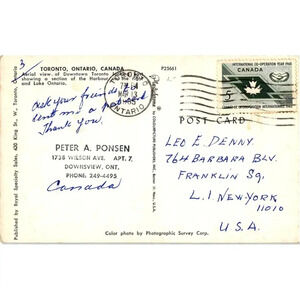 3/
TORONTO, ONTARIO, CANADA
Aerial view of Downtown Toronto
showing a section of the Harbour
and Lake Ontario.
P25661
Ask your friends
sent me a postcard
Thank you.
PETER A. PONSEN
1738 WILSON AVE. APT. 7,
DOWNSVIEW, ONT.
PHONE: 249-4495
Canada
ONTARIO
INTERNATIONAL CO-OPERATION YEAR 1965
CANADA
5
ANNÉE DE LA COOPÉRATION INTERNATIONALE
POST CARD
LEO E. DENNY.
764 BARBARA BLV.
FRANKLIN SQ.
L.I. NEW-YORK
11010
U.S.A.
Published by Royal Specialty Sales, 430 King St., W., Toronto, Canada
Color photo by Photographic Survey Corp.